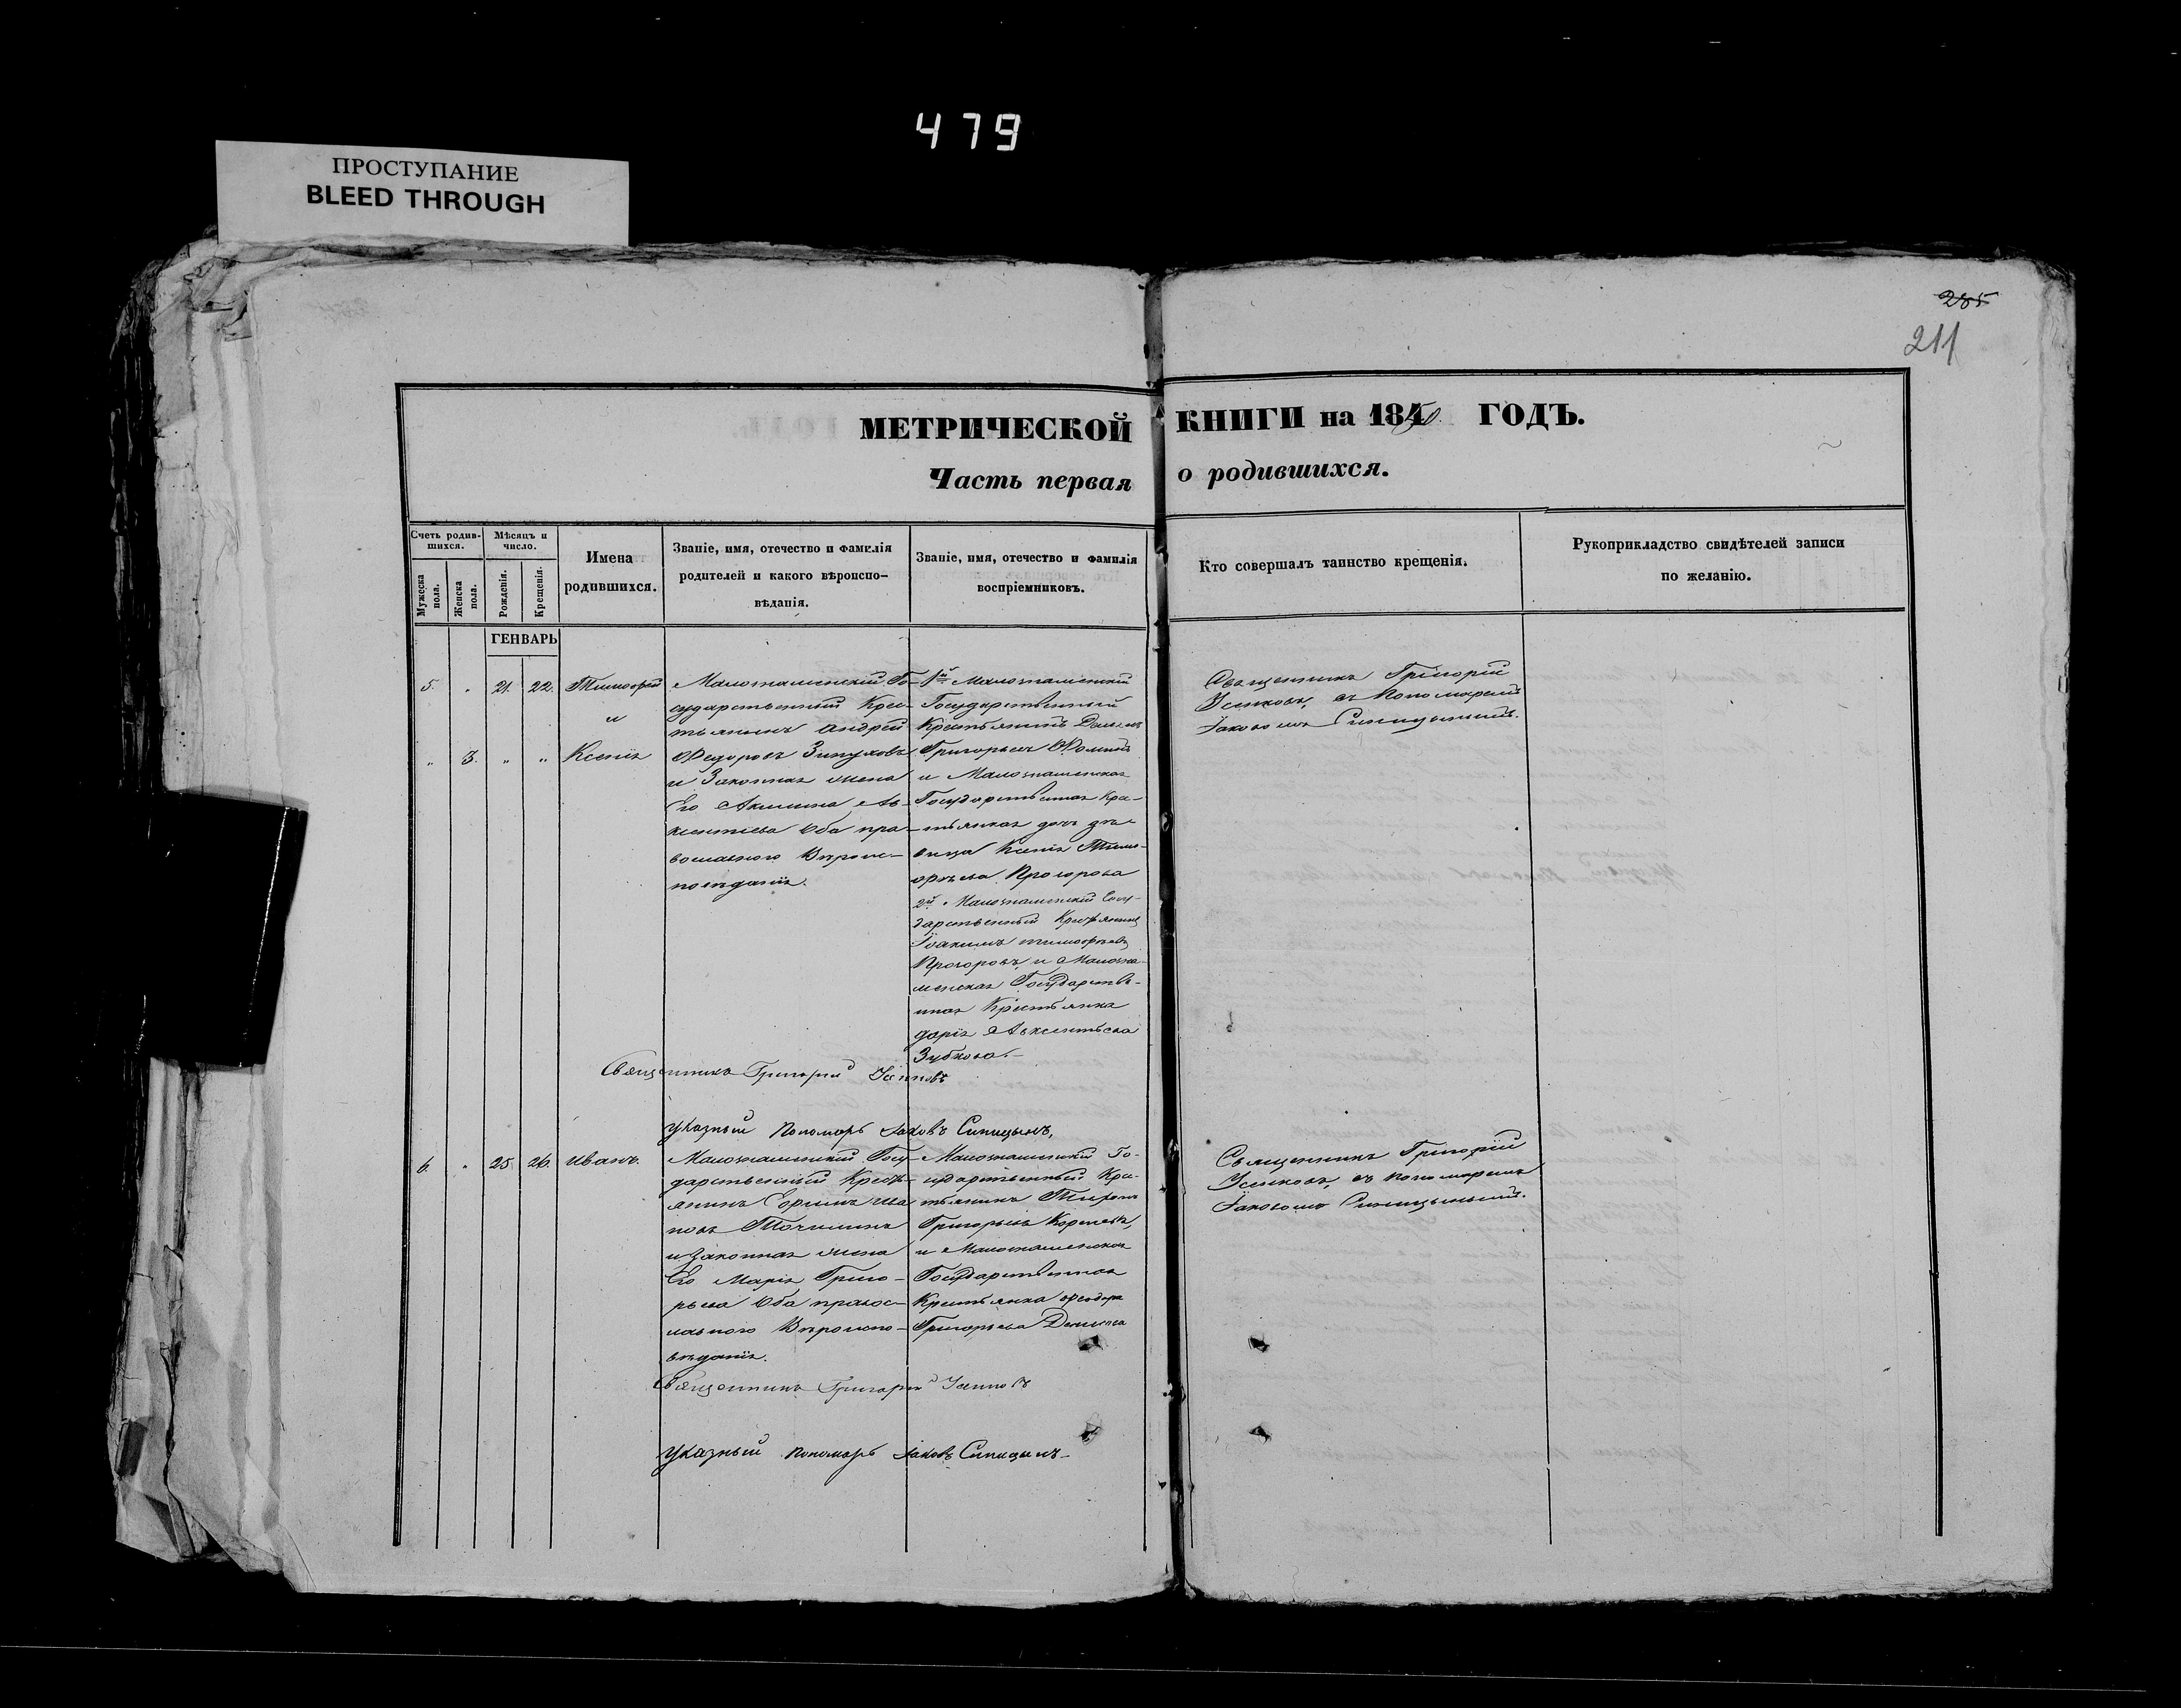 479
ПРОСТУПАНИЕ
BLEED THROUGH
285
211
МЕТРИЧЕСКОЙ КНИГИ на 1850 ГОДЪ.
Часть первая о родившихся.
Счетъ родив-
шихся.
Мужеска
пола.
Женска
пола.
Мѣсяцъ и
число.
Рожденія.
Крещенія.
Имена
родившихся.
Званіе, имя, отечество и фамилія
родителей и какого вѣроиспо-
вѣданія.
Званіе, имя, отечество и фамилія
воспріемниковъ.
Кто совершалъ таинство крещенія.
Рукоприкладство свидѣтелей записи
по желанію.
ГЕНВАРЬ
5. " 21. 22. Тимофей
и
" 3. " " Ксенія
Малознаменскій Го-
сударственный Крес-
тьянинъ Андрей
Федоровъ
и Законная жена
Его Акилина Ав-
ксентіева Оба пра-
вославнаго Вѣроис-
повѣданія.
1й Малознаменскій
Государственный
Крестьянинъ
Григорьевъ Фоминъ
и Малознаменская
Государственная Кре-
стьянка дочь дѣ-
вица Ксенія Тимо-
фѣева Прохорова
2й Малознаменскій Госу-
дарственный Крестьянинъ
Іоакимъ Тимофѣевъ
Прохоровъ и Малозна-
менская Государстве-
нная Крестьянка
Дарія Авксентьева
Зубкова.
Священникъ Григорій
Усиковъ, съ Пономаремъ
Іаковомъ Синицынымъ.
Священникъ Григорій Усиковъ
Указный Пономарь Іаковъ Синицынъ,
6. " 25. 26. Иванъ.
Малознаменскій Госу-
дарственный Кресть-
янинъ Ефимъ Ива-
новъ
и Законная жена
Его Марія Григо-
рьева Оба правос-
лавнаго Вѣроиспо-
вѣданія.
Малознаменскій Го-
сударственный Кре-
стьянинъ
Григорьевъ
и Малознаменская
Государственная
Крестьянка Феодора
Григорьева Денисова
Священникъ Григорій
Усиковъ, съ пономаремъ
Іаковомъ Синицынымъ.
Священникъ Григорій Усиковъ
Указный пономарь Іаковъ Синицынъ